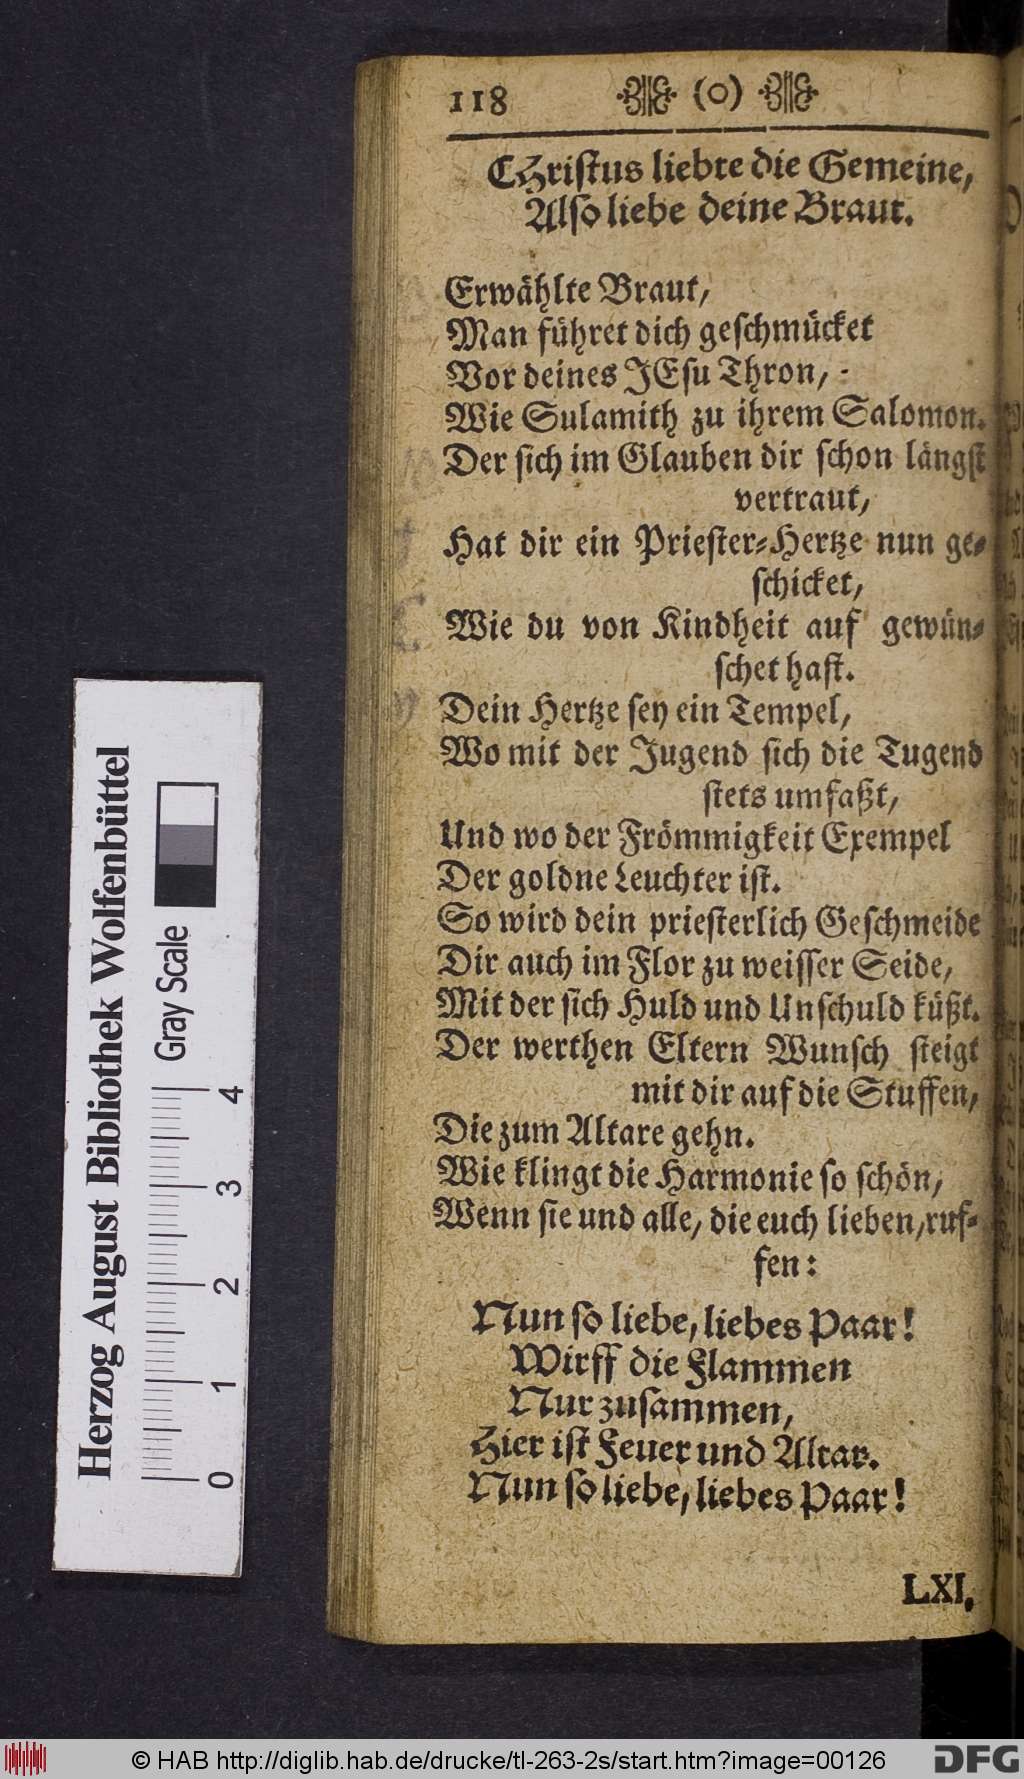 118 (o)
CHriſtus liebte die Gemeine,
Alſo liebe deine Braut.
Erwählte Braut,
Man führet dich geſchmücket
Vor deines JEſu Thron,
Wie Sulamith zu ihrem Salomon.
Der ſich im Glauben dir ſchon längſt
vertraut,
Hat dir ein Prieſter-Hertze nun ge-
ſchicket,
Wie du von Kindheit auf gewün-
ſchet haſt.
Dein Hertze ſey ein Tempel,
Wo mit der Jugend ſich die Tugend
ſtets umfaßt,
Und wo der Frömmigkeit Exempel
Der goldne Leuchter iſt.
So wird dein prieſterlich Geſchmeide
Dir auch im Flor zu weiſſer Seide,
Mit der ſich Huld und Unſchuld küßt.
Der werthen Eltern Wunſch ſteigt
mit dir auf die Stuffen,
Die zum Altare gehn.
Wie klingt die Harmonie ſo ſchön,
Wenn ſie und alle, die euch lieben, ruf-
fen:
Nun ſo liebe, liebes Paar!
Wirff die Flammen
Nur zuſammen,
Hier iſt Feuer und Altar.
Nun ſo liebe, liebes Paar!
LXI.
Herzog August Bibliothek Wolfenbüttel
Gray Scale
0 1 2 3 4
© HAB http://diglib.hab.de/drucke/tl-263-2s/start.htm?image=00126
DFG